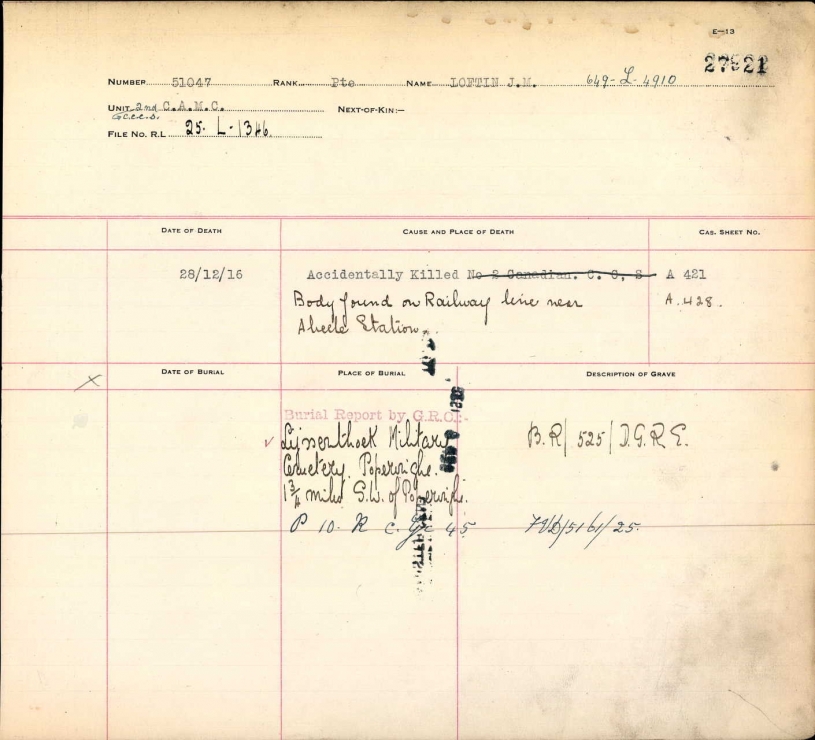 E—13
27521
NUMBER 51047 RANK Pte NAME LOFTIN J.M. 649-L-4910
UNIT 2nd C.A.M.C. NEXT-OF-KIN:—
FILE No. R.L. 25-L-1346.
DATE OF DEATH CAUSE AND PLACE OF DEATH CAS. SHEET NO.
28/12/16 Accidentally Killed No 2 Canadian. C. C, S A 421
Body found on Railway line near A.428.
Abeele Station.
DATE OF BURIAL PLACE OF BURIAL DESCRIPTION OF GRAVE
Burial Report by G.R.O:-
Lijssenthoek Military B.R/525/D.G.R.E.
Cemetery. Poperinghe.
1¾ miles S.W. of Poperinghe.
P 10- R c. 45 /5161/25.